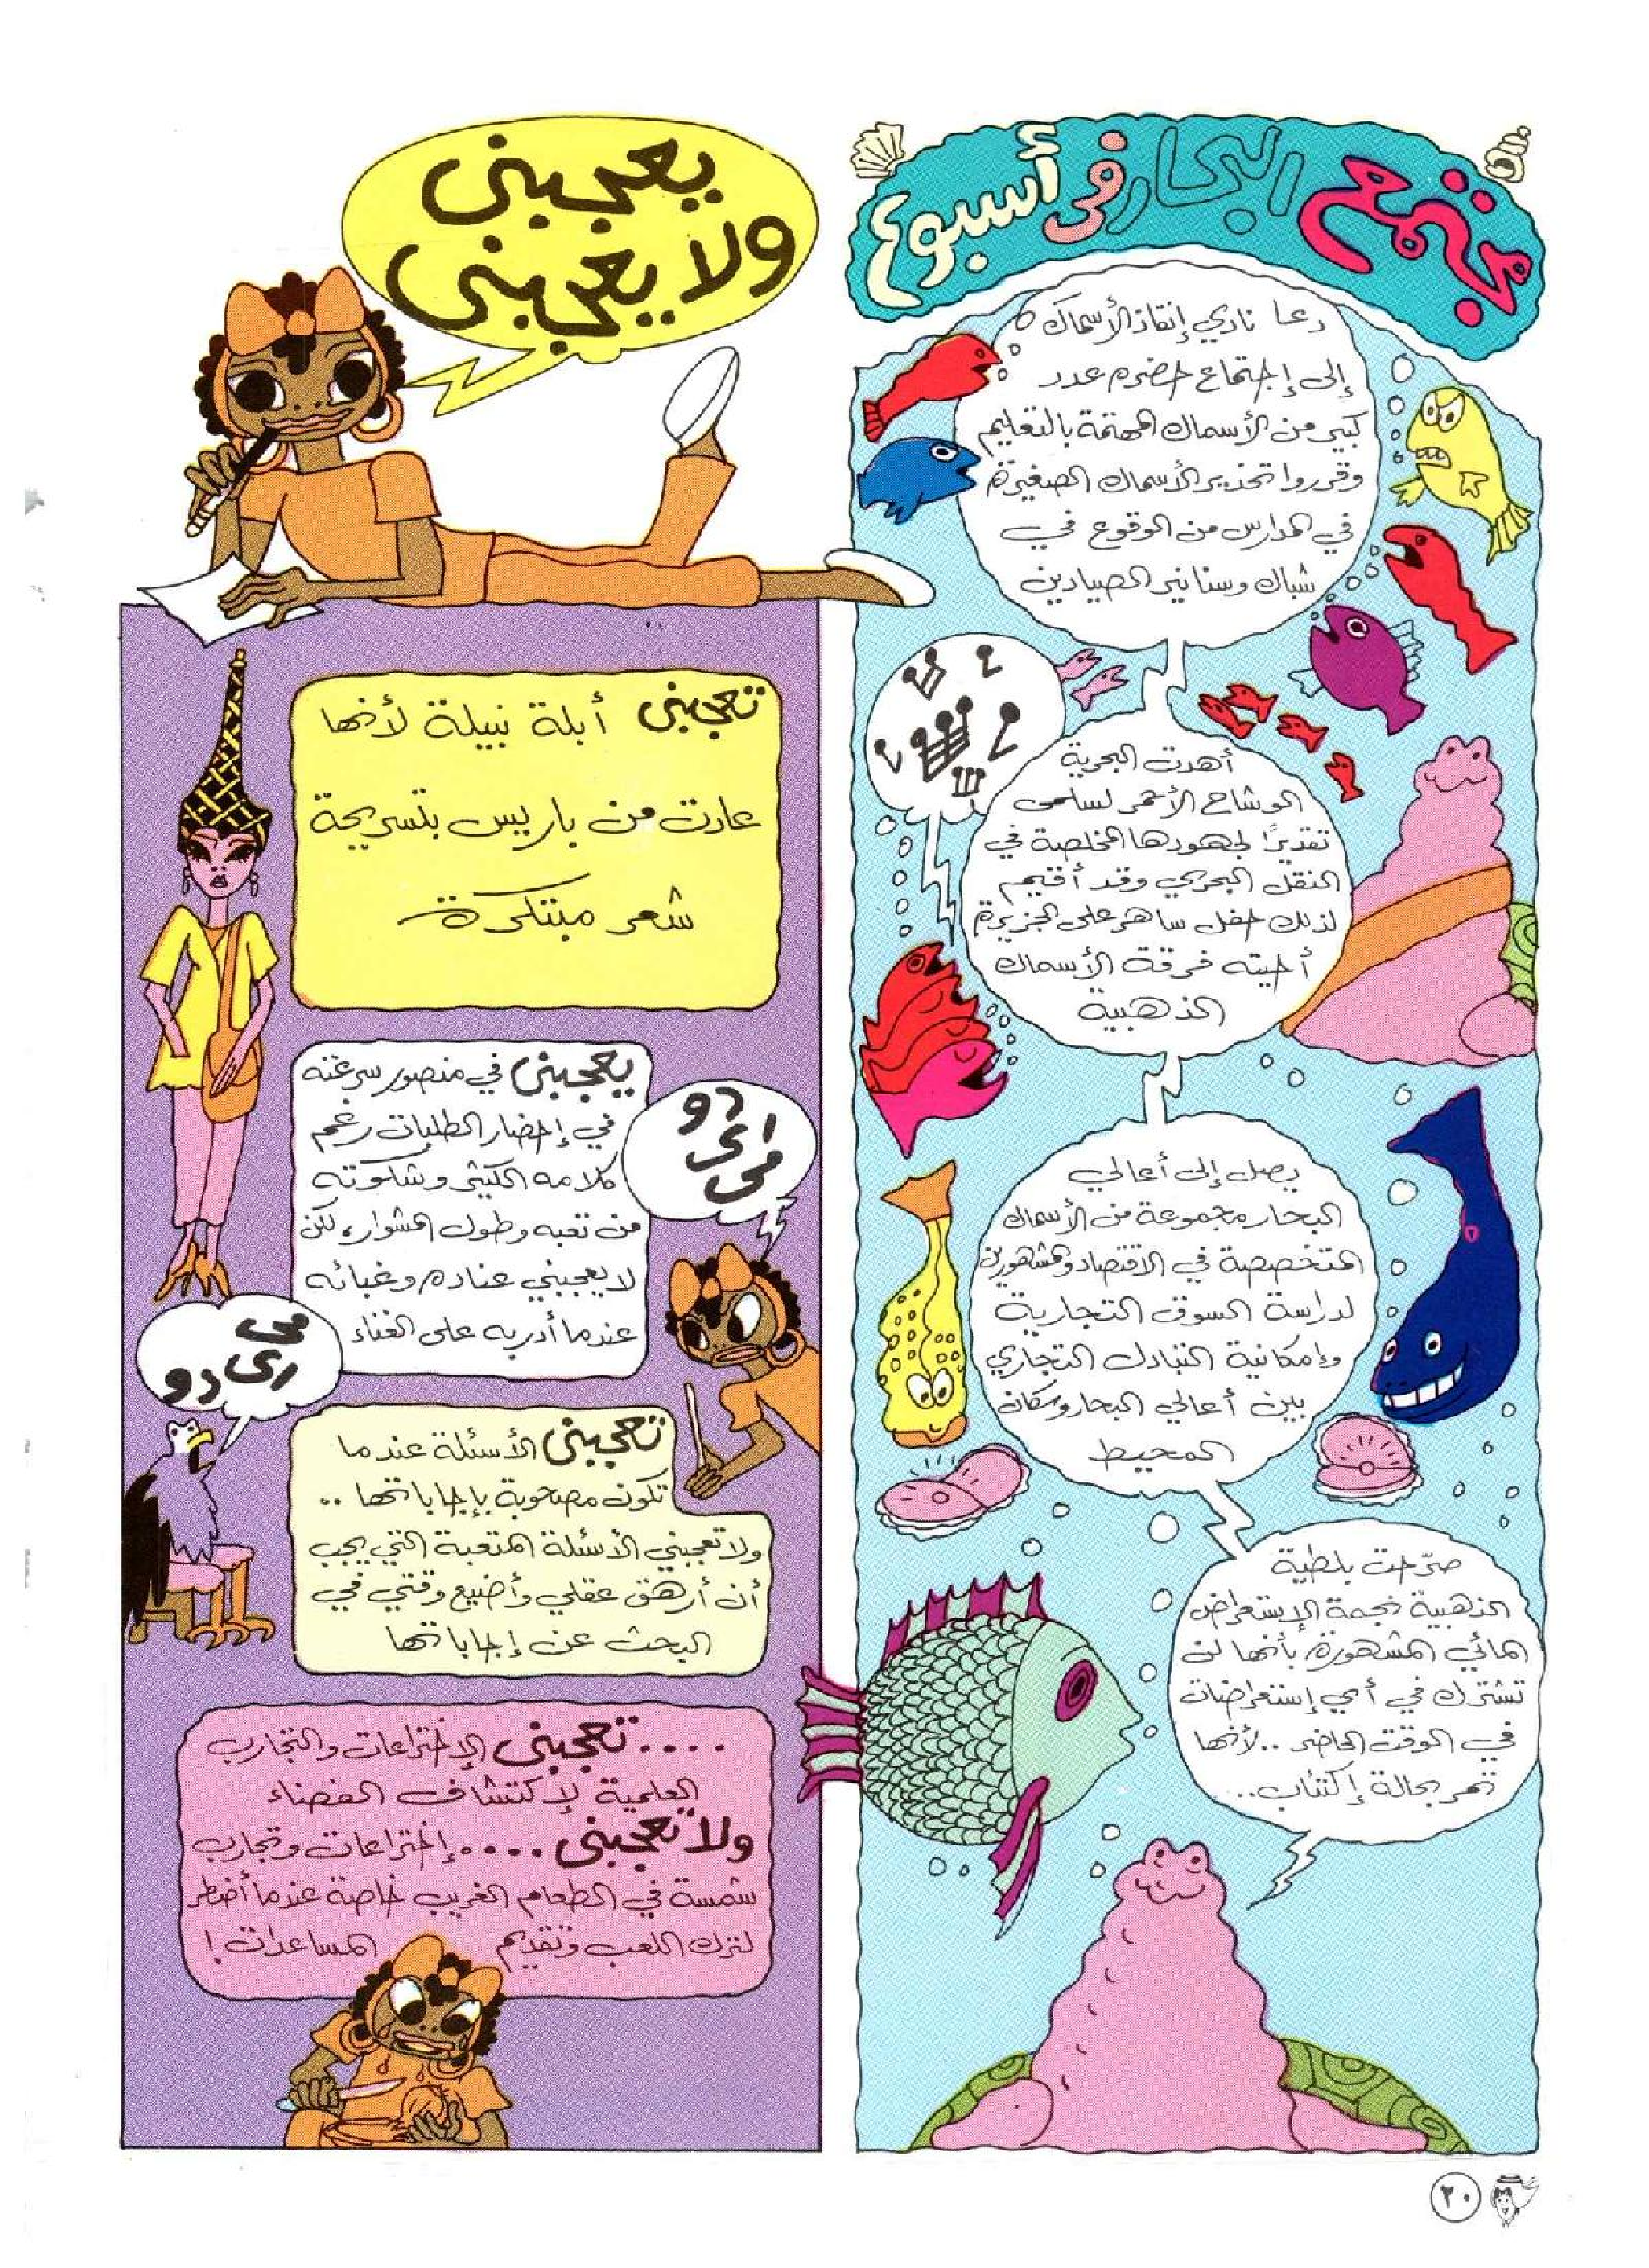 مجتمع البحار في أسبوع
دعا نادي إنقاذ الأسماك
إلى إجتماع حضره عدد
كبير من الأسماك المهتمة بالتعليم
وقرروا تحذير الأسماك الصغيرة
في المدارس من الوقوع في
شباك وسنانير الصيادين
أهدت البحرية
الوشاح الأحمر لسلمى
تقديرًا لجهودها المخلصة في
النقل البحري وقد أقيم
لذلك حفل ساهر على الجزيرة
أحيته فرقة الأسماك
الذهبية
يصل إلى أعالي
البحار مجموعة من الأسماك
المتخصصة في الاقتصاد والمشهورين
لدراسة السوق التجارية
وإمكانية التبادل التجاري
بين أعالي البحار وسكان
المحيط
صرّحت بلطية
الذهبية نجمة الإستعراض
المائي المشهورة بأنها لن
تشترك في أي إستعراضات
في الوقت الحاضر .. لأنها
تمر بحالة إكتئاب ..
يعجبنى
ولا يعجبنى
تعجبنى أبلة نبيلة لأنها
عادت من باريس بتسريحة
شعر مبتكرة
يعجبنى في منصور سرعته
في إحضار الطلبات رغم
كلامه الكثير وشكوته
من تعبه وطول المشوار، لكن
لا يعجبني عناده وغبائه
عندما أدربه على الغناء
دو
رى
مى
مى
رى دو
تعجبنى الأسئلة عندما
تكون مصحوبة بإجاباتها ..
ولا تعجبني الأسئلة المتعبة التي يجب
أن أرهق عقلي وأضيع وقتي في
البحث عن إجاباتها
.... تعجبنى الإختراعات والتجارب
العلمية لإكتشاف الفضاء
ولا تعجبنى .... إختراعات وتجارب
شمسة في الطعام الغريب خاصة عندما أضطر
لترك اللعب وتقديم المساعدات !
٢٠